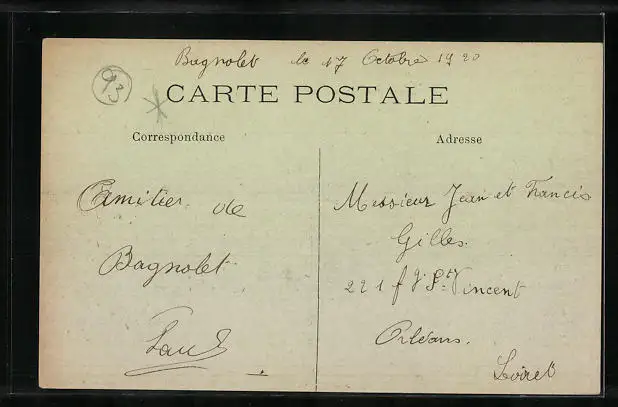 Bagnolet le 17 Octobre 1920
93
CARTE POSTALE
Correspondance
Adresse
Amitiés de
Bagnolet
Paul
Messieur Jean et Francis
Gilles.
221 fg St Vincent
Orléans.
Loiret